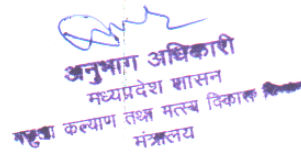 अनुभाग अधिकारी
मध्यप्रदेश शासन
मछुआ कल्याण तथा मत्स्य विकास
मंत्रालय